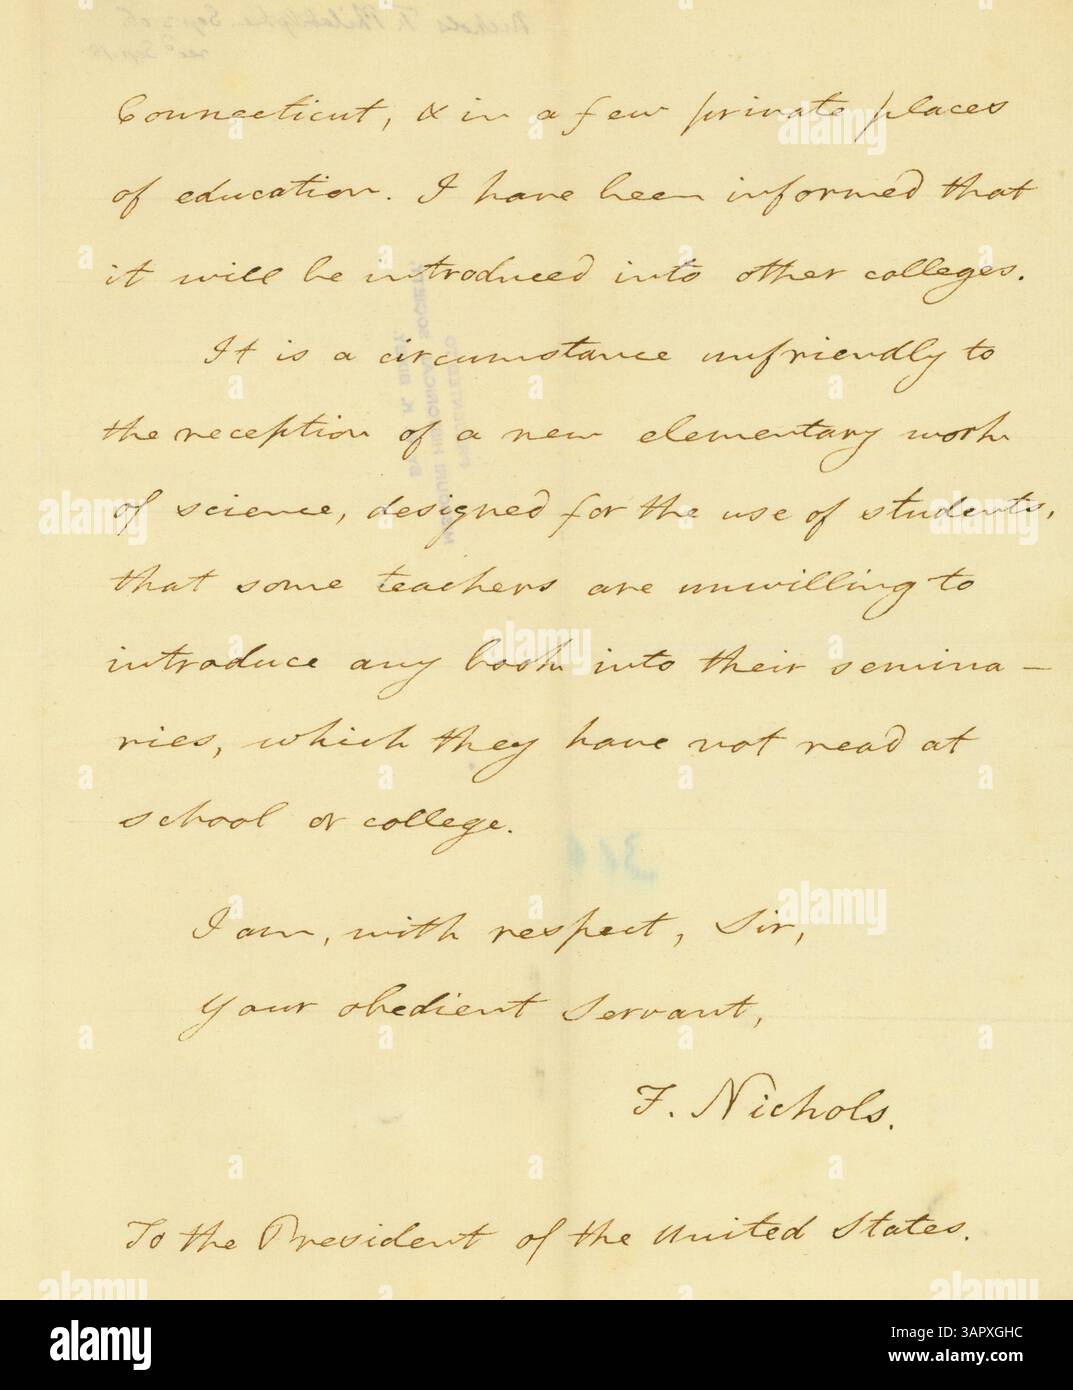 Connecticut, & in a few private places
of education. I have been informed that
it will be introduced into other colleges.
It is a circumstance unfriendly to
the reception of a new elementary work
of science, designed for the use of students,
that some teachers are unwilling to
introduce any book into their semina-
ries, which they have not read at
school or college.
I am, with respect, Sir,
Your obedient servant,
F. Nichols.
To the President of the United States.
alamy
Image ID: 3APXGHC
www.alamy.com